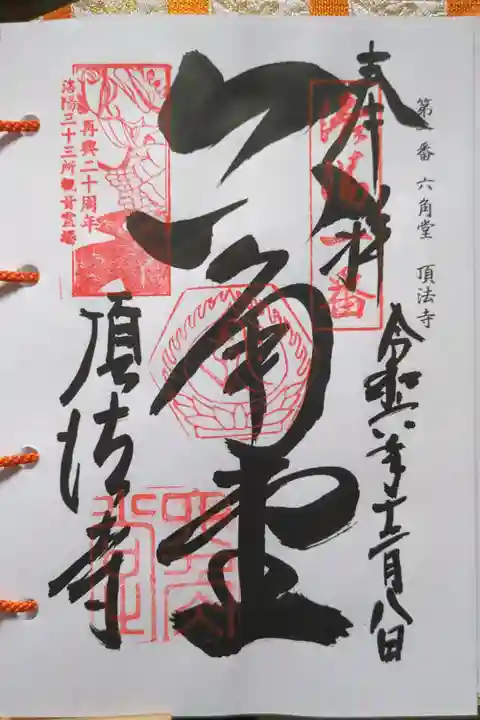 第一番 六角堂 頂法寺
奉拝
洛陽一番
令和六年十二月八日
六角堂
再興二十周年
洛陽三十三所観音霊場
頂法寺